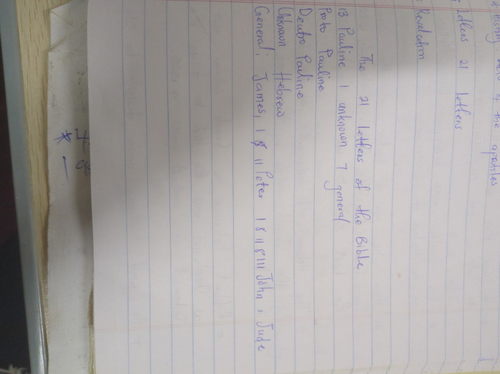 the apostles
letters 21 letters
Revelation
The 21 letters of the Bible
13 Pauline 1 unknown 7 general
Proto Pauline
Deutro Pauline
Unknown Hebrew
General: James, I & II Peter I & II & III John, Jude